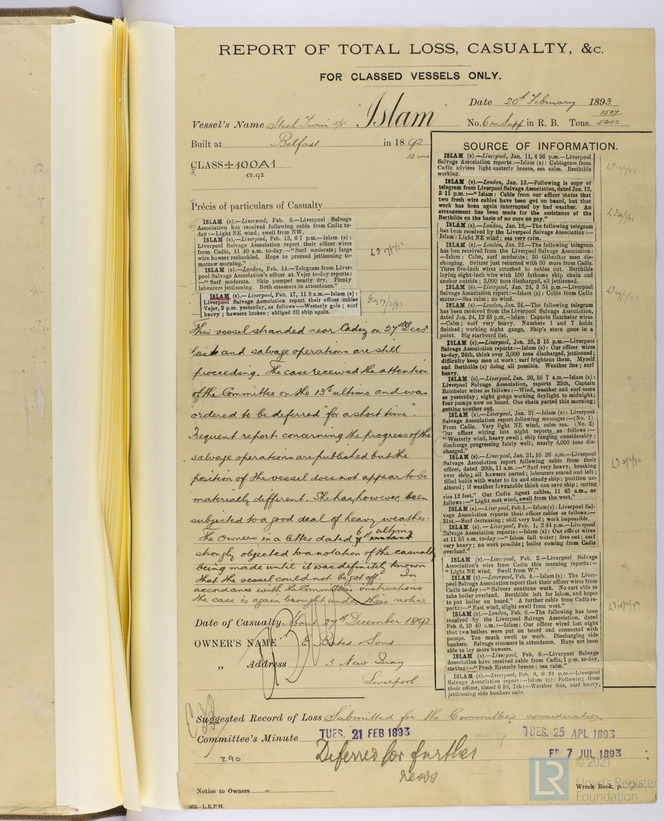 REPORT OF TOTAL LOSS, CASUALTY, &c.
FOR CLASSED VESSELS ONLY.
Date 20th February 1893
Vessel's Name Steel Twin s/s Islam
No. 6 in Supp in R. B. Tons.
Built at Belfast in 1892
CLASS +100A1
12.92
Précis of particulars of Casualty
ISLAM (s).—Liverpool, Feb. 9.—Liverpool Salvage
Association has received following cable from Cadiz to-
day:—Light NE wind; swell from NW.
ISLAM (s).—Liverpool, Feb. 13, 6 7 p.m.—Islam (s):
Liverpool Salvage Association report their officer wires
from Cadiz, 11 40 a.m. to-day—"Surf moderate; large
wire hawser reshackled. Hope to proceed jettisoning to-
morrow morning."
ISLAM (s).—London, Feb. 14.—Telegram from Liver-
pool Salvage Association's officer at Vejer to-day reports:
—"Surf moderate. Ship pumped nearly dry. Plenty
labourers jettisoning. Both steamers in attendance."
ISLAM (s).—Liverpool, Feb. 17, 11 8 a.m.—Islam (s):
Liverpool Salvage Association report their officer cables
Vejer, 2 p.m. yesterday, as follows—Westerly gale; surf
heavy; hawsers broken; obliged fill ship again.
This vessel stranded near Cadiz on 27th Decr
last and salvage operations are still
proceeding. The case received the attention
of the Committee on the 13th ultimo and was
ordered to be deferred for a short time.
Frequent report concerning the progress of the
salvage operations are published but the
position of the vessel does not appear to be
materially different. She has, however, been
subjected to a good deal of heavy weather.
The Owners in a letter dated 6 ultimo
strongly objected to a notation of the casualty
being made until it was definitely known
that the vessel could not be got off. In
accordance with the Committee's instructions
the case is again brought under their notice
Date of Casualty about 27th December 1892
OWNER'S NAME E. Bates & Sons
" Address 3 New Quay
Liverpool
SOURCE OF INFORMATION.
ISLAM (s).—Liverpool, Jan. 11, 4 26 p.m.—Liverpool
Salvage Association reports:—Islam (s): Cablegram from
Cadiz advises light easterly breeze, sea calm. Berthilde
working.
ISLAM (s).—London, Jan. 13.—Following is copy of
telegram from Liverpool Salvage Association, dated Jan. 12,
5 11 p.m.:—"Islam: Cable from our officer states that
two fresh wire cables have been got on board, but that
work has been again interrupted by bad weather. An
arrangement has been made for the assistance of the
Berthilde on the basis of no cure no pay."
ISLAM (s).—London, Jan. 18.—The following telegram
has been received by the Liverpool Salvage Association:—
Islam: Light NE wind; sea very calm.
ISLAM (s).—London, Jan. 23.—The following telegram
has been received from the Liverpool Salvage Association:
Islam: Calm, surf moderate; 50 Gibraltar men dis-
charging. Seitzer just returned with 50 more from Cadiz.
Three five-inch wires attached to cables out. Berthilde
laying eight-inch wire with 100 fathoms ship chain and
anchor outside; 2,000 tons discharged, all jettisoned.
ISLAM (s).—Liverpool, Jan. 24, 2 51 p.m.—Liverpool
Salvage Association reports:—Islam (s): Cable from Cadiz
states:—Sea calm; no wind.
ISLAM (s).—London, Jan. 24.—The following telegram
has been received from the Liverpool Salvage Association,
dated Jan. 24, 12 45 p.m.—Islam: Captain Batchelor wires
—Calm; surf very heavy. Numbers 1 and 7 holds
finished; working eight gangs. Ship's stem zone in a
point. Big starboard list.
ISLAM (s).—Liverpool, Jan. 25, 3 15 p.m.—Liverpool
Salvage Association reports:—Islam (s): Our officer wires
to-day, 24th, think over 3,000 tons discharged, jettisoned;
difficulty keep men at work; surf frightens them. Myself
and Berthilde (s) doing all possible. Weather fine; surf
heavy.
ISLAM (s).—Liverpool, Jan. 26, 10 7 a.m.—Islam (s):
Liverpool Salvage Association, reports 25th, Captain
Batchelor wires as follows:—Wind, weather and surf same
as yesterday; eight gangs working daylight to midnight;
four pumps now on board. One chain parted this morning;
getting another out.
ISLAM (s).—Liverpool, Jan. 27.—Islam (s): Liverpool
Salvage Association report following messages:—(No. 1)
From Cadiz. Very light NE wind, calm sea. (No. 2)
Our officer wiring last night reports as follows:—
"Westerly wind, heavy swell; ship ranging considerably;
discharge progressing fairly well; nearly 4,000 tons dis-
charged."
ISLAM (s).—Liverpool, Jan. 31, 10 26 a.m.—Liverpool
Salvage Association report following cable from their
officer, dated 30th, 11 a.m.:—"Surf very heavy, breaking
over ship; all hawsers parted; labourers scared and left;
filled holds with water to fix and steady ship; position un-
altered; if weather favourable think can save ship; spring
rise 12 feet." Our Cadiz Agent cables, 11 45 a.m., as
follows:—"Light east wind, swell from the west."
ISLAM (s).—Liverpool, Feb. 1.—Islam(s): Liverpool Sal-
vage Association reports their officer cables as follows:—
31st.—Surf decreasing; still very bad; work impossible.
ISLAM (s).—Liverpool, Feb. 1, 2 44 p.m.—Liverpool
Salvage Association reports:—Islam (s): Our officer wires
at 11 55 a.m. to-day—"Islam full water; fires out; surf
very heavy; no work possible; boiler coming from Cadiz
overland."
ISLAM (s).—Liverpool, Feb. 2.—Liverpool Salvage
Association has following from Cadiz this morning:—
"Light NE wind. Swell from W."
ISLAM (s).—Liverpool, Feb. 4.—Islam (s): The Liver-
pool Salvage Association report their officer wires from
Cadiz to-day:—"Salvors continue work. No cart able to
take boiler overland. Berthilde left for Islam, and hopes
to put boiler on board." A further cable from Cadiz re-
ports:—"East wind, slight swell from west."
ISLAM (s).—London, Feb. 6.—The following has been
received by the Liverpool Salvage Association, dated
Feb. 6, 10 40 a.m.:—Islam: Our officer wired last night
that two boilers were put on board and connected with
pumps. Too much swell to work. Discharging side
bunkers. Salvage steamers in attendance. Have not been
able to lay more hawsers.
ISLAM (s).—Liverpool, Feb. 6.—Liverpool Salvage
Association have received cable from Cadiz, 1 p.m. to-day,
stating—"Fresh Easterly breeze; sea calm."
ISLAM (s).—Liverpool, Feb. 8, 6 24 p.m.—Liverpool
Salvage Association report:—Islam (s): Following from
their officer, timed 6 10, 7th:—Weather fine, surf heavy,
jettisoning side bunkers only.
Suggested Record of Loss Submitted for the Committee's consideration
Committee's Minute TUES. 21 FEB 1893 TUES. 25 APL 1893
290 Deferred for further FRI. 7 JUL 1893
news
Notice to Owners
Wreck Book, p.
L.R.P.H.
LR © 2021
Lloyd's Register
Foundation